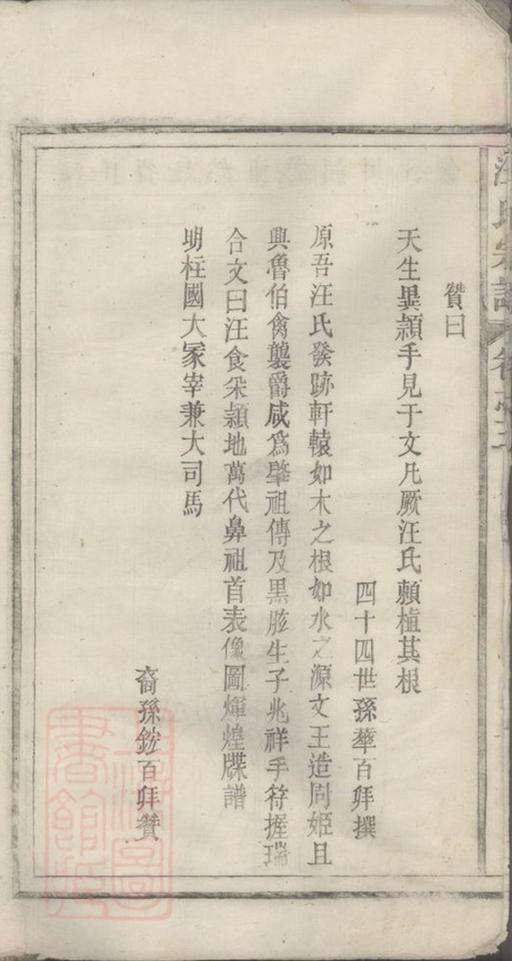 汪氏宗譜
贊曰
天生異潁手見于文凡厥汪氏賴植其根
四十四世孫華百拜撰
原吾汪氏發跡軒轅如木之根如水之源文王造周姬旦
興魯伯禽襲爵咸為肇祖傳及黑肱生子兆祥手符握瑞
合文曰汪食采潁地萬代鼻祖首表像圖煇煌牒譜
明柱國大冢宰兼大司馬
裔孫鋐百拜贊